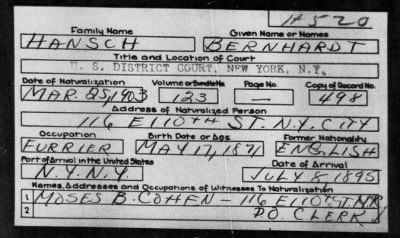 H520
Family Name Given Name or Names
HANSCH BERNHARDT
Title and Location of Court
U. S. DISTRICT COURT, NEW YORK, N.Y.
Date of Naturalization Volume or Bundle No. Page No. Copy of Record No.
MAR. 25, 1903 123 — 498
Address of Naturalized Person
116 E 110TH ST. N.Y. CITY
Occupation Birth Date or Age Former Nationality
FURRIER MAY 17, 1871 ENGLISH
Port of Arrival in the United States Date of Arrival
N.Y. N.Y. JULY 8 1895
Names, Addresses and Occupations of Witnesses To Naturalization
1 MOSES B. COHEN — 116 E 110 ST. NY
2 P.O. CLERK